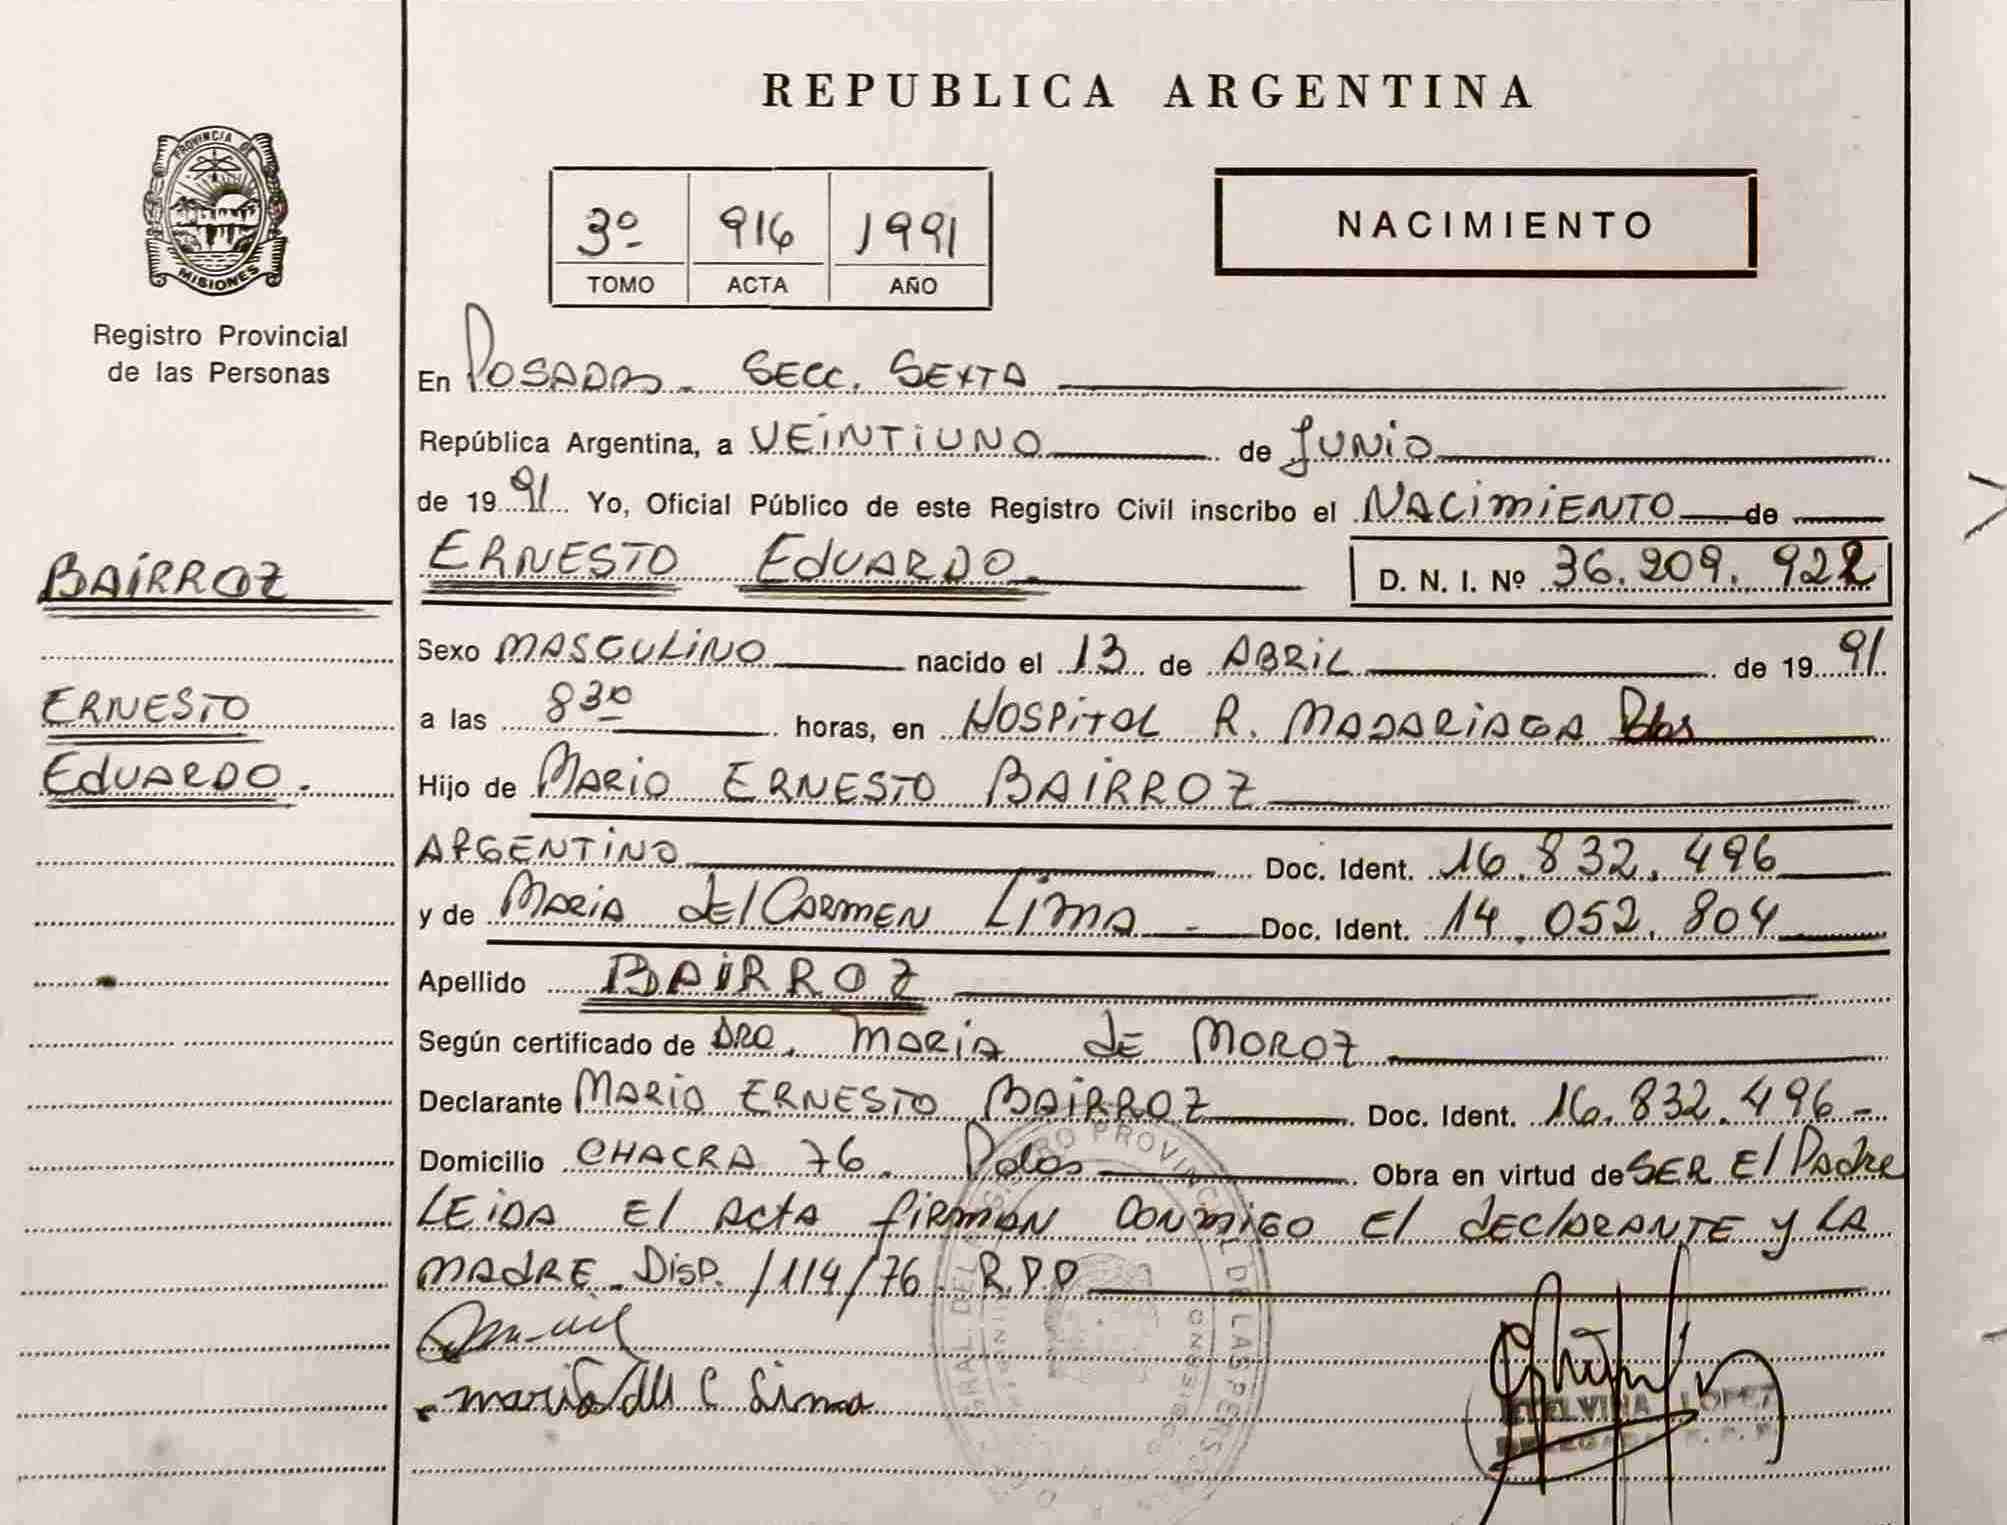 REPUBLICA ARGENTINA
PROVINCIA DE
MISIONES
Registro Provincial
de las Personas
3º 916 1991
TOMO ACTA AÑO
NACIMIENTO
En POSADAS - SECC. SEXTA
República Argentina, a VEINTIUNO de JUNIO
de 1991 Yo, Oficial Público de este Registro Civil inscribo el NACIMIENTO de
BAIRROZ
ERNESTO EDUARDO D. N. I. Nº 36.209.922
Sexo MASCULINO nacido el 13 de ABRIL de 1991
ERNESTO
a las 8 30 horas, en HOSPITAL R. MADARIAGA Pdas
EDUARDO.
Hijo de MARIO ERNESTO BAIRROZ
ARGENTINO Doc. Ident. 16.832.496
y de MARIA del CARMEN LIMA - Doc. Ident. 14.052.804
Apellido BAIRROZ
Según certificado de DRA. MARIA dE MOROZ
Declarante MARIO ERNESTO BAIRROZ Doc. Ident. 16.832.496-
Domicilio CHACRA 76. Pdas Obra en virtud de SER El Padre
LEIDA El ACTA firman CONMIGO El dEClARANTE y LA
MADRE - Disp. /114/76 R.P.P
maria del C Lima
ETELVINA LOPEZ
DELEGADA R. P. P.